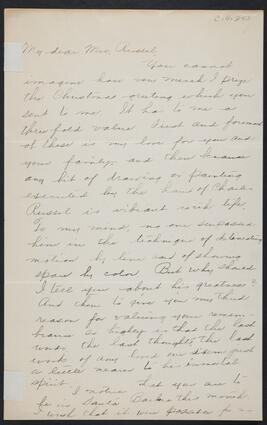 C.4.252
My dear Mrs. Russell,
You cannot
imagine how very much I prize
the Christmas greeting which you
sent to me. It has to me a
three fold value. First and foremost
of these is my love for you and
your family, and then because
any bit of drawing or painting
executed by the hand of Charles
Russell is vibrant with life.
To my mind, no one surpassed
him in the technique of
motion by line and of showing
space by color. But why should
I tell you about his greatness?
And then to give you my third
reason for valuing your remem-
brance so highly is that the last
words, the last thoughts, the last
work of any loved one seem just
a little nearer to the immortal
spirit.
I notice that you are to
be in Santa Barbara this month.
I wish that it were possible for